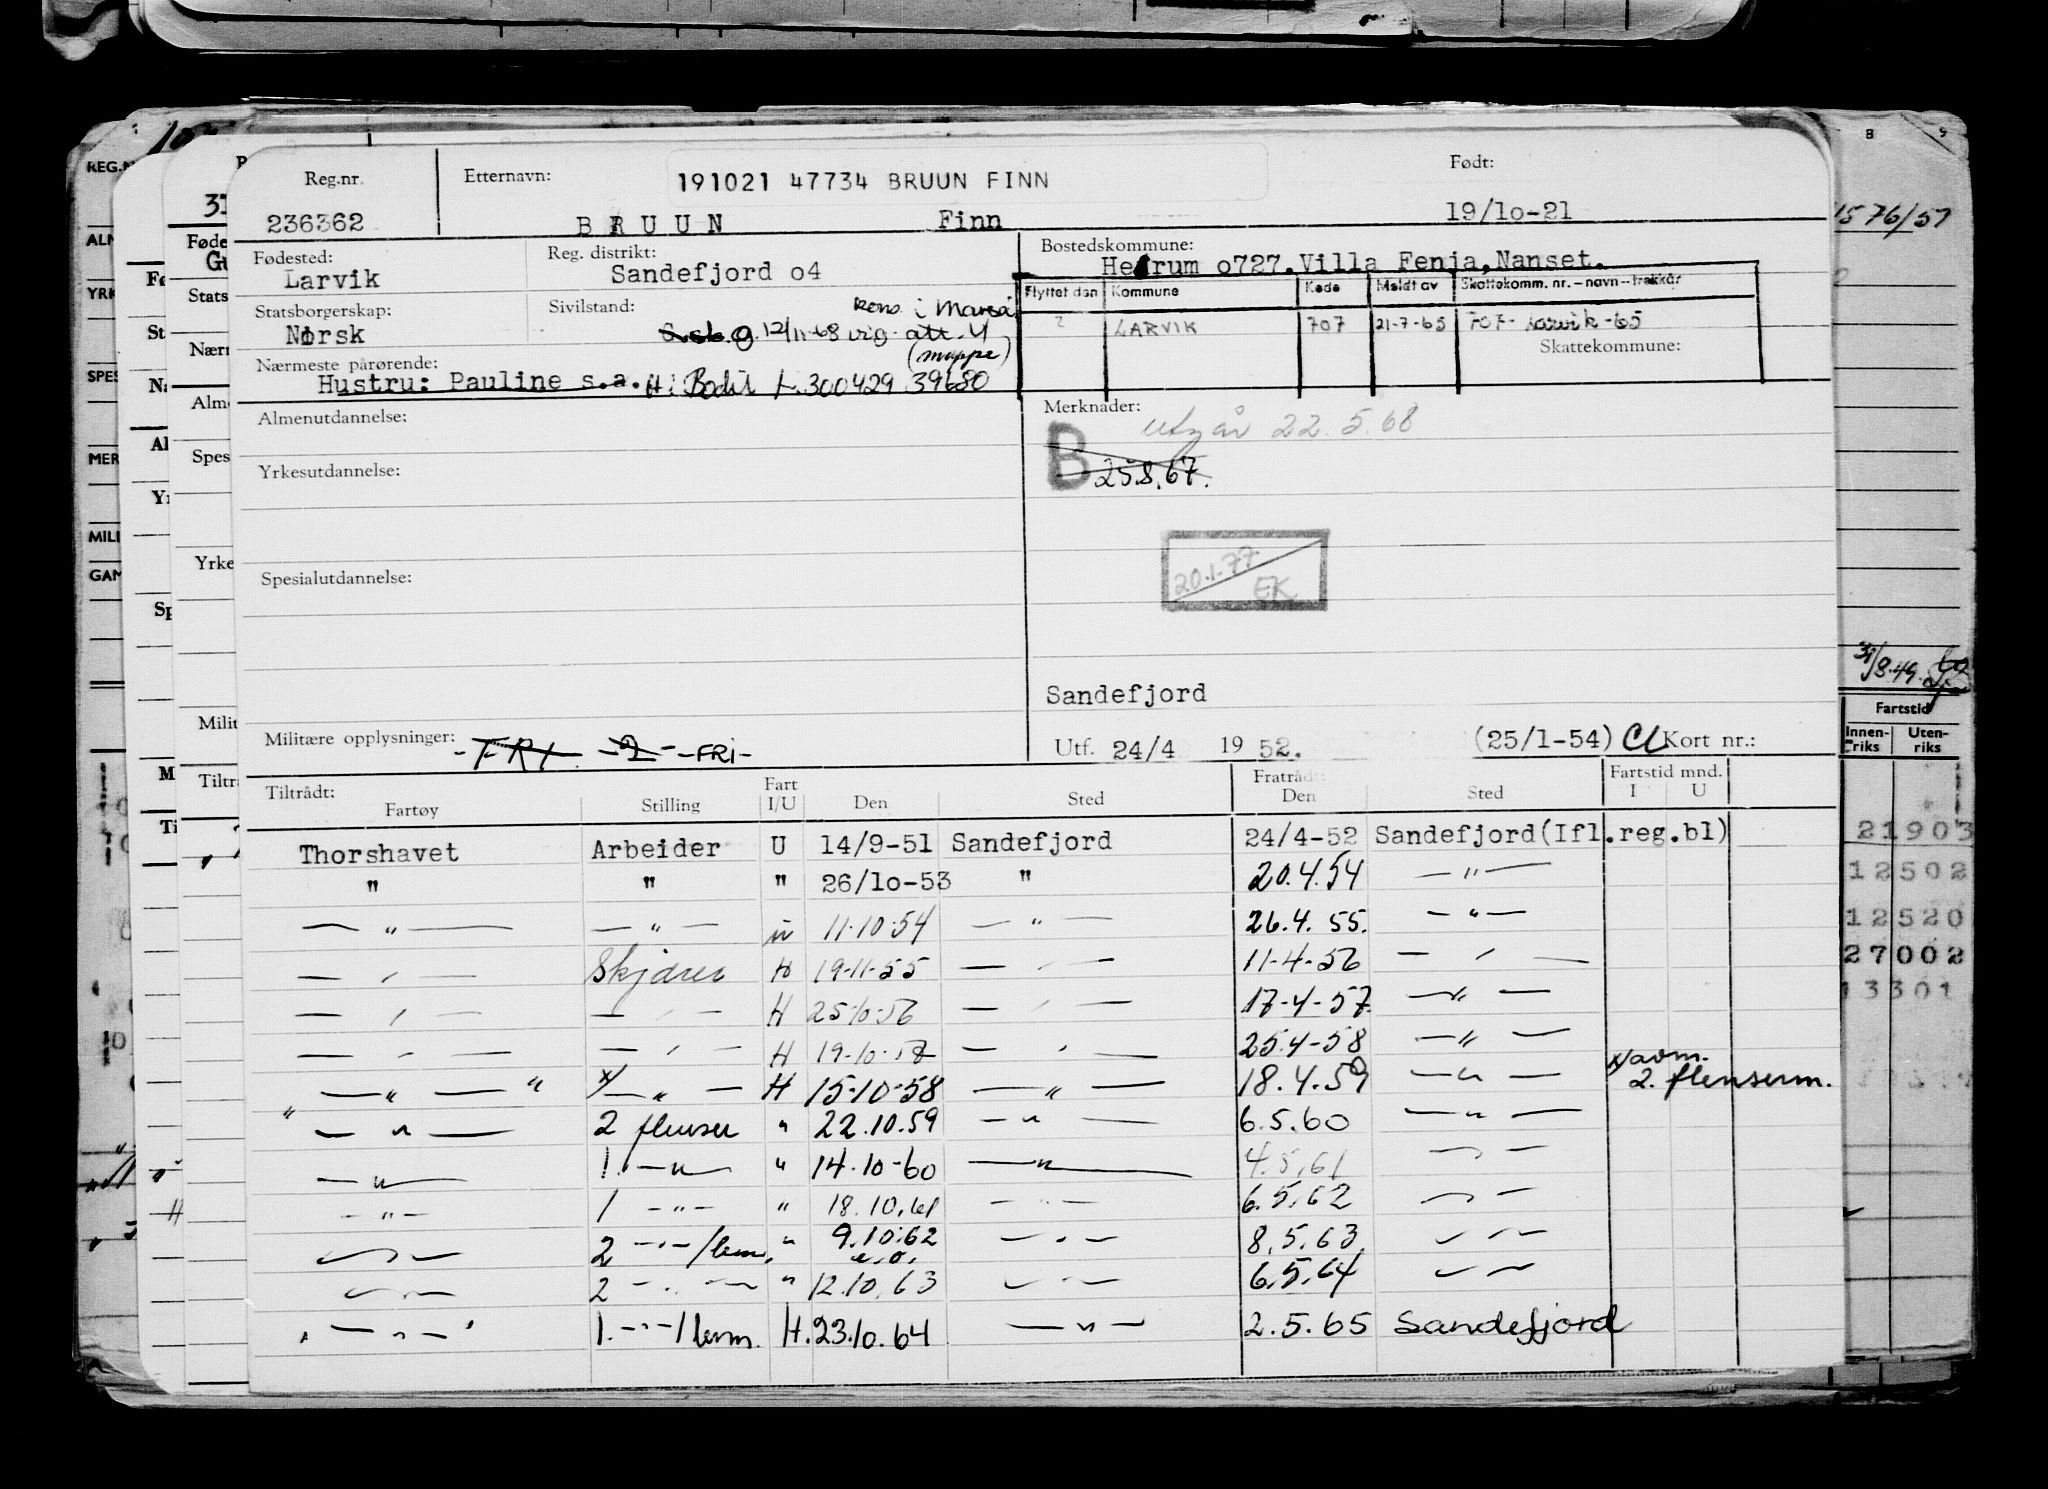 Reg.nr. Etternavn: 191021 47734 BRUUN FINN Født:
236362 BRUUN Finn 19/10-21
Fødested: Reg. distrikt: Bostedskommune:
Larvik Sandefjord o4 Hedrum o727. Villa Fenja, Nanset.
Flyttet den Kommune Kode Meldt av Skattekomm. nr. - navn - trekkår
Statsborgerskap: Sivilstand:
Norsk g. 12/11-68 vig att. 4
(mappe)
LARVIK 707 21-7-65 707 - Larvik - 65
Skattekommune:
Nærmeste pårørende:
Hustru: Pauline s.a. H: Bodil f. 300429 39680
Almenutdannelse: Merknader:
Utgår 22.5.68
B 25.8.67.
Yrkesutdannelse:
20.1.77
EK
Spesialutdannelse:
Sandefjord
Militære opplysninger: -FRI- -2- -FRI-
Utf. 24/4 19 52. (25/1-54) CL Kort nr.:
Tiltrådt: Fratrådt: Fartstid mnd.
Fartøy Stilling Fart I/U Den Sted Den Sted I U
Thorshavet Arbeider U 14/9-51 Sandefjord 24/4-52 Sandefjord(Ifl.reg.bl)
" " " 26/10-53 " 20.4.54 — " —
— " — — " — u 11.10.54 — " — 26.4.55. — " —
— " — Skjærer H 19-11-55 — " — 11-4-56 — " —
— " — — " — H 25-10-56 — " — 17-4-57 — " —
— " — — " — H 19-10-57 — " — 25.4-58 — " —
— " — " x/ — " — H 15-10-58 — " — 18.4.59 — " — x/ avm. 2. flenserm.
" — " — 2 flenser " 22.10.59 — " — 6.5.60 — " —
— " — 1. — " — " 14-10-60 — " — 4.5.61 — " —
— " — 1 — " — " 18.10.61 — " — 6.5.62 — " —
— " — 2 — " — /lem. " 9.10.62 — " — 8.5.63 — " —
— " — 2 — " — " 12.10.63 — " — 6.5.64 — " —
— " — 1. — " — /lem. H. 23.10.64 — " — 2.5.65 Sandefjord
1576/57
31/8.49
Fartstid
Innenriks Utenriks
21903
12502
12520
27002
13301